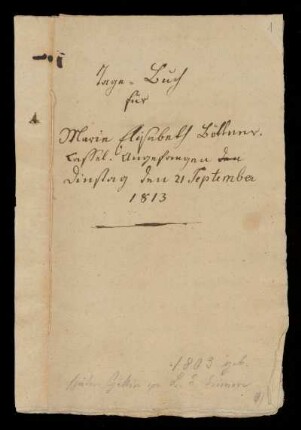 1
Tage-Buch
für
Marie Elisabeth Böttner.
Cassel. Angefangen den
Dinstag den 21 September
1813
1803 geb.